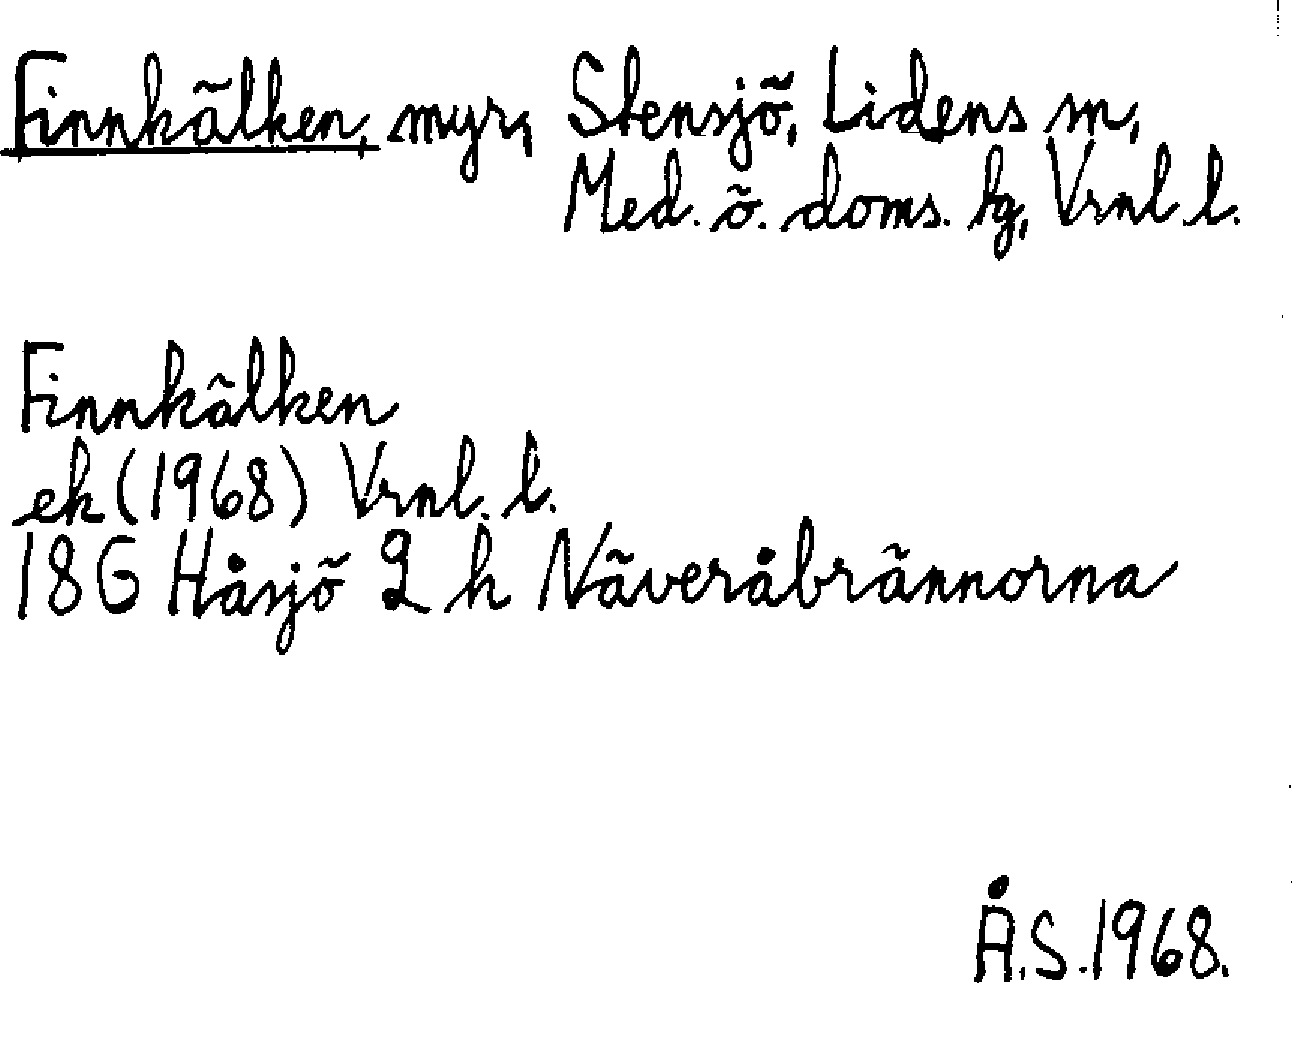 Finnkälken, myr, Stensjö, Lidens sn,
Med. ö. doms. hg, Vrnl. l.
Finnkälken
ek (1968) Vrnl. l.
18G Håsjö 2 h Näveråbrännorna
Å.S. 1968.